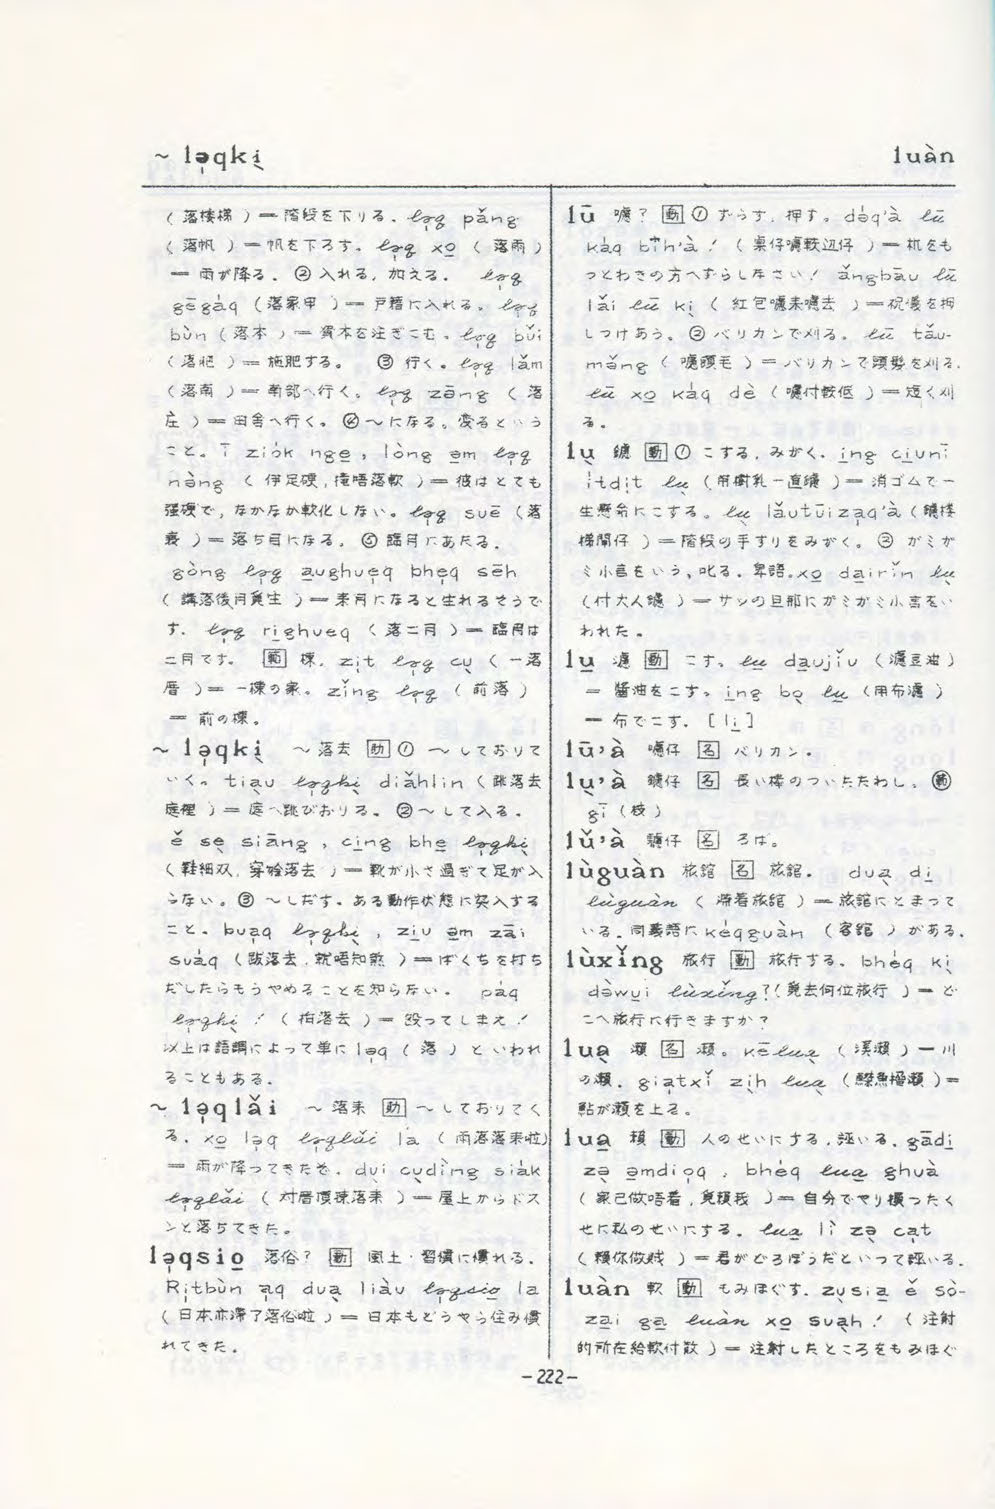 ~ lə̣qkị̀
luàn
( 落楼梯 ) ＝ 階段を下りる. lə̣q pǎng
( 落帆 ) ＝ 帆を下ろす。 lə̣q xo̲ ( 落雨 )
＝ 雨が降る. ② 入れる, 加える. lə̣q
gēgáq ( 落家甲 ) ＝ 戸籍に入れる。 lə̣q
bùn ( 落本 ) ＝ 資本を注ぎこむ. lə̣q bǔi
( 落肥 ) ＝ 施肥する。 ③ 行く. lə̣q lǎm
( 落南 ) ＝ 南部へ行く。 lə̣q zēng ( 落
庄 ) ＝ 田舎へ行く。 ④ ～になる。変るという
こと。 ī ziók nge̲ , lòng ə̲m lə̣q
nə̀ng ( 伊足硬, 攏唔落軟 ) ＝ 彼はとても
強硬で, なかなか軟化しない。 lə̣q suē ( 落
衰 ) ＝ 落ち目になる. ⑤ 臨月にあたる.
gòng lə̣q a̲ughuẹq bhẹq sēh
( 講落後月覓生 ) ＝ 来月になると生れるそうで
す. lə̣q ri̲ghuẹq ( 落二月 ) ＝ 臨月は
二月です. 範 棟. zịt lə̣q cụ̀ ( 一落
厝 ) ＝ 一棟の家。 zǐng lə̣q ( 前落 )
＝ 前の棟。
~ lə̣qkị̀ ～落去 助 ① ～しておりて
いく。 tiạu lə̣qkị̀ diǎhlin ( 跳落去
庭裡 ) ＝ 庭へ跳びおりる。 ② ～して入る.
ě sẹ siāng , ci̲ng bhe̲ lə̣qkị̀
( 鞋細双, 穿𣍐落去 ) ＝ 靴が小さ過ぎて足が入
らない。 ③ ～しだす. ある動作状態に突入する
こと. buạq lə̣qkị̀ , zi̲u ə̲m zāi
suáq ( 跋落去, 就唔知煞 ) ＝ ばくちを打ち
だしたらもうやめることを知らない. páq
lə̣qkị̀ ! ( 拍落去 ) ＝ 殴ってしまえ!
以上は語調によって単に lə̣q ( 落 ) といわれ
ることもある.
~ lə̣qlǎi ～落来 助 ～しておりてく
る. xo̲ lə̣q lə̣qlǎi la ( 雨落落来啦 )
＝ 雨が降ってきたぞ. dụi cụdìng siák
lə̣qlǎi ( 対厝頂摔落来 ) ＝ 屋上からドス
ンと落ちてきた。
lə̣qsio̲ 落俗? 動 風土・習慣に慣れる.
Rịtbùn ạq duạ liàu lə̣qsio̲ la
( 日本亦滞了落俗啦 ) ＝ 日本もどうやら住み慣
れてきた.
lū 嚕? 動 ① ずらす, 押す。 dóq'à lū
káq bǐh'à ! ( 桌仔嚕較辺仔 ) ＝ 机をも
っとわきの方へずらしなさい! ǎngbāu lū
lǎi lū kị ( 紅包嚕来嚕去 ) ＝ 祝儀を押
しつけあう. ② バリカンで刈る。 lū tǎu-
mǎng ( 嚕頭毛 ) ＝ バリカンで頭髪を刈る.
lū xo̲ káq dè ( 嚕付較低 ) ＝ 短く刈
る。
lụ 鑢 動 ① こする, みがく. i̲ng ciụnī
ítdịt lụ ( 用樹乳一直鑢 ) ＝ 消ゴムで一
生懸命にこする。 lụ lǎutūizaq'à ( 鑢楼
梯閘仔 ) ＝ 階段の手すりをみがく。 ② がミが
ミ小言をいう, 叱る. 卑語。 xo̲ da̲irǐn lụ
( 付大人鑢 ) ＝ サツの旦那にガミガミ小言をい
われた.
lu̲ 濾 動 こす. lu̲ da̲ujǐu ( 濾豆油 )
＝ 醤油をこす。 i̲ng bọ lu̲ ( 用布濾 )
＝ 布でこす. [ li̲ ]
lū'à 嚕仔 名 バリカン.
lụ'à 鑢仔 名 長い棒のついたたわし。 範
gī ( 枝 )
lǔ'à 驢仔 名 ろば。
lùguàn 旅館 名 旅館. duạ di̲
lùguàn ( 滞着旅館 ) ＝ 旅館にとまって
いる. 同義語に kéqguàn ( 客館 ) がある.
lùxǐng 旅行 動 旅行する. bhéq kị
dǝ̀wụi lùxǐng? ( 覓去何位旅行 ) ＝ ど
こへ旅行に行きますか?
luạ 瀬 名 瀬。 kēluạ ( 渓瀬 ) ＝ 川
の瀬. zịh luạ
＝ 鮎が瀬を上る。
lua̲ 頼 動 人のせいにする, 誣いる. gādi̲
zọ ə̲mdiọq , bhéq lua̲ ghuà
( 家己做唔着, 覓頼我 ) ＝ 自分でやり損ったく
せに私のせいにする. lua̲ lì zọ cạt
( 頼你做賊 ) ＝ 君がどろぼうだといって誣いる.
luàn 軟 動 もみほぐす. zụsia̲ ě sò-
za̲i gạ luàn xo̲ suạh ! ( 注射
的所在給軟付散 ) ＝ 注射したところをもみほぐ
-222-